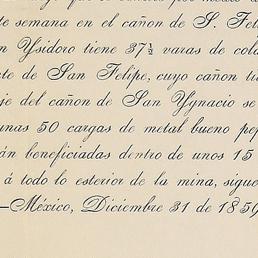 te semana en el cañon de S. Fel
n Ysidoro tiene 37½ varas de col
te de San Felipe, cuyo cañon ti
je del cañon de San Ygnacio se
unas 50 cargas de metal bueno pe
án beneficiadas dentro de unos 15
á todo lo esterior de la mina, sigue
—México, Diciembre 31 de 185